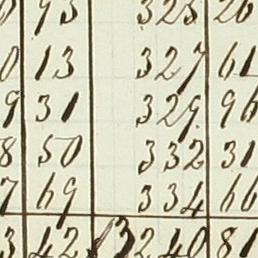 93 325 20
0 13 327 61
9 31 329 96
8 50 332 31
7 69 334 66
3 42 13240 81